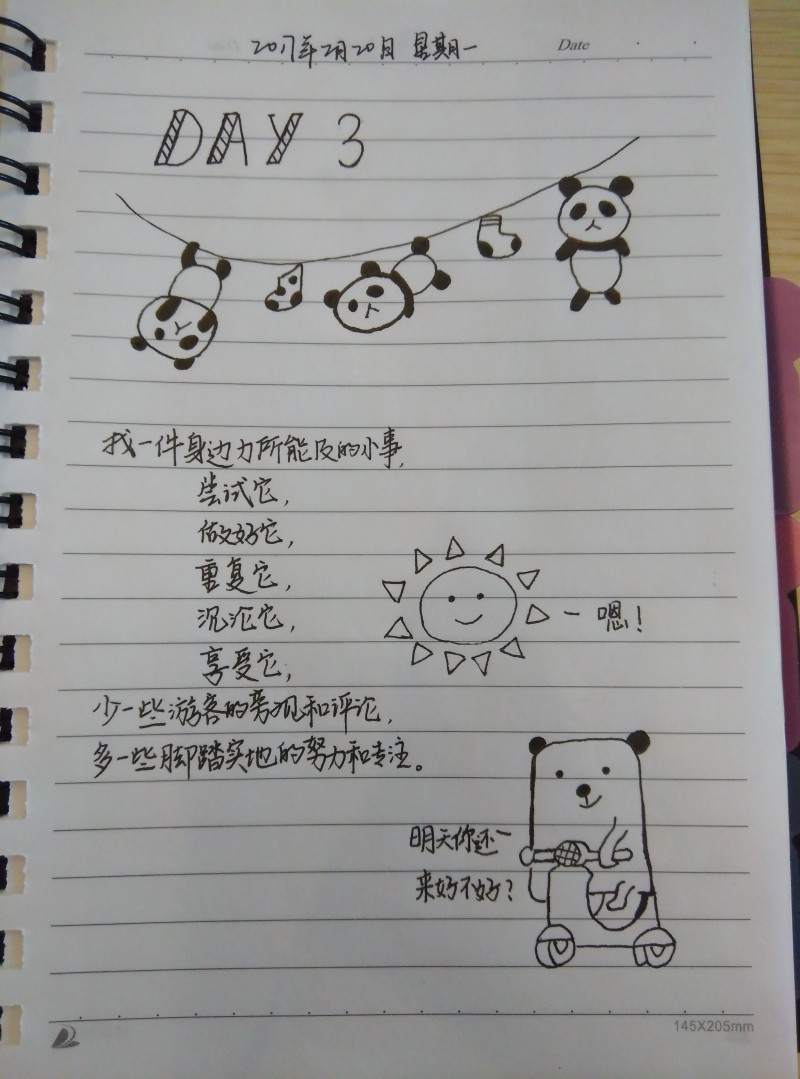 2017年2月20日 星期一
Date
DAY 3
找一件身边力所能及的小事,
尝试它,
做好它,
重复它,
沉沦它,
享受它,
少一些游客的旁观和评论,
多一些脚踏实地的努力和专注。
嗯!
明天你还
来好不好?
145X205mm